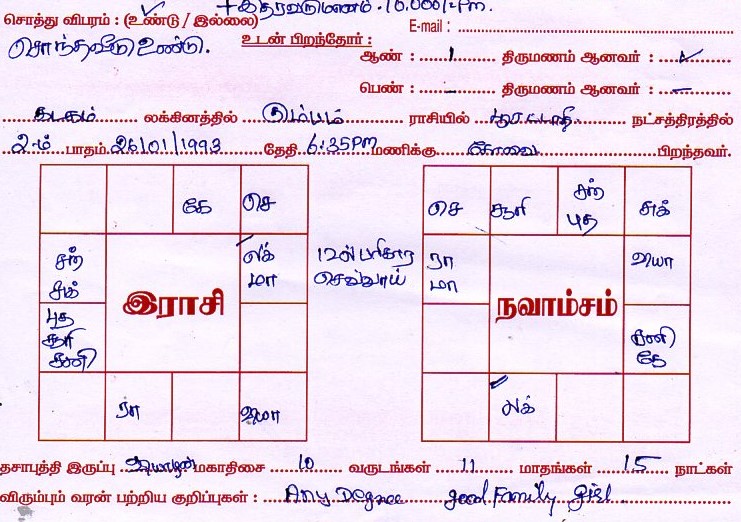 + இதர வருமானம். 10,000/- Pm.
சொத்து விபரம் : (உண்டு / இல்லை) E-mail :
சொந்தவீடு உண்டு. உடன் பிறந்தோர் :
ஆண் : 1 திருமணம் ஆனவர் :
பெண் : – திருமணம் ஆனவர் : –
கடகம் லக்கினத்தில் கும்பம் ராசியில் பூரட்டாதி நட்சத்திரத்தில்
2-ம் பாதம் 26/01/1993 தேதி 6:35PM மணிக்கு கோவை பிறந்தவர்.
கே செ
செ சூரி சந் புத சுக்
சந் சுக் லக் மா
12ல் பரிகார செவ்வாய்
ரா மா வியா
இராசி
நவாம்சம்
புத சூரி சனி
சனி கே
ரா வியா
லக்
தசாபுத்தி இருப்பு வியாழன் மகாதிசை 10 வருடங்கள் 11 மாதங்கள் 15 நாட்கள்
விரும்பும் வரன் பற்றிய குறிப்புகள் : Any Degree good Family Girl